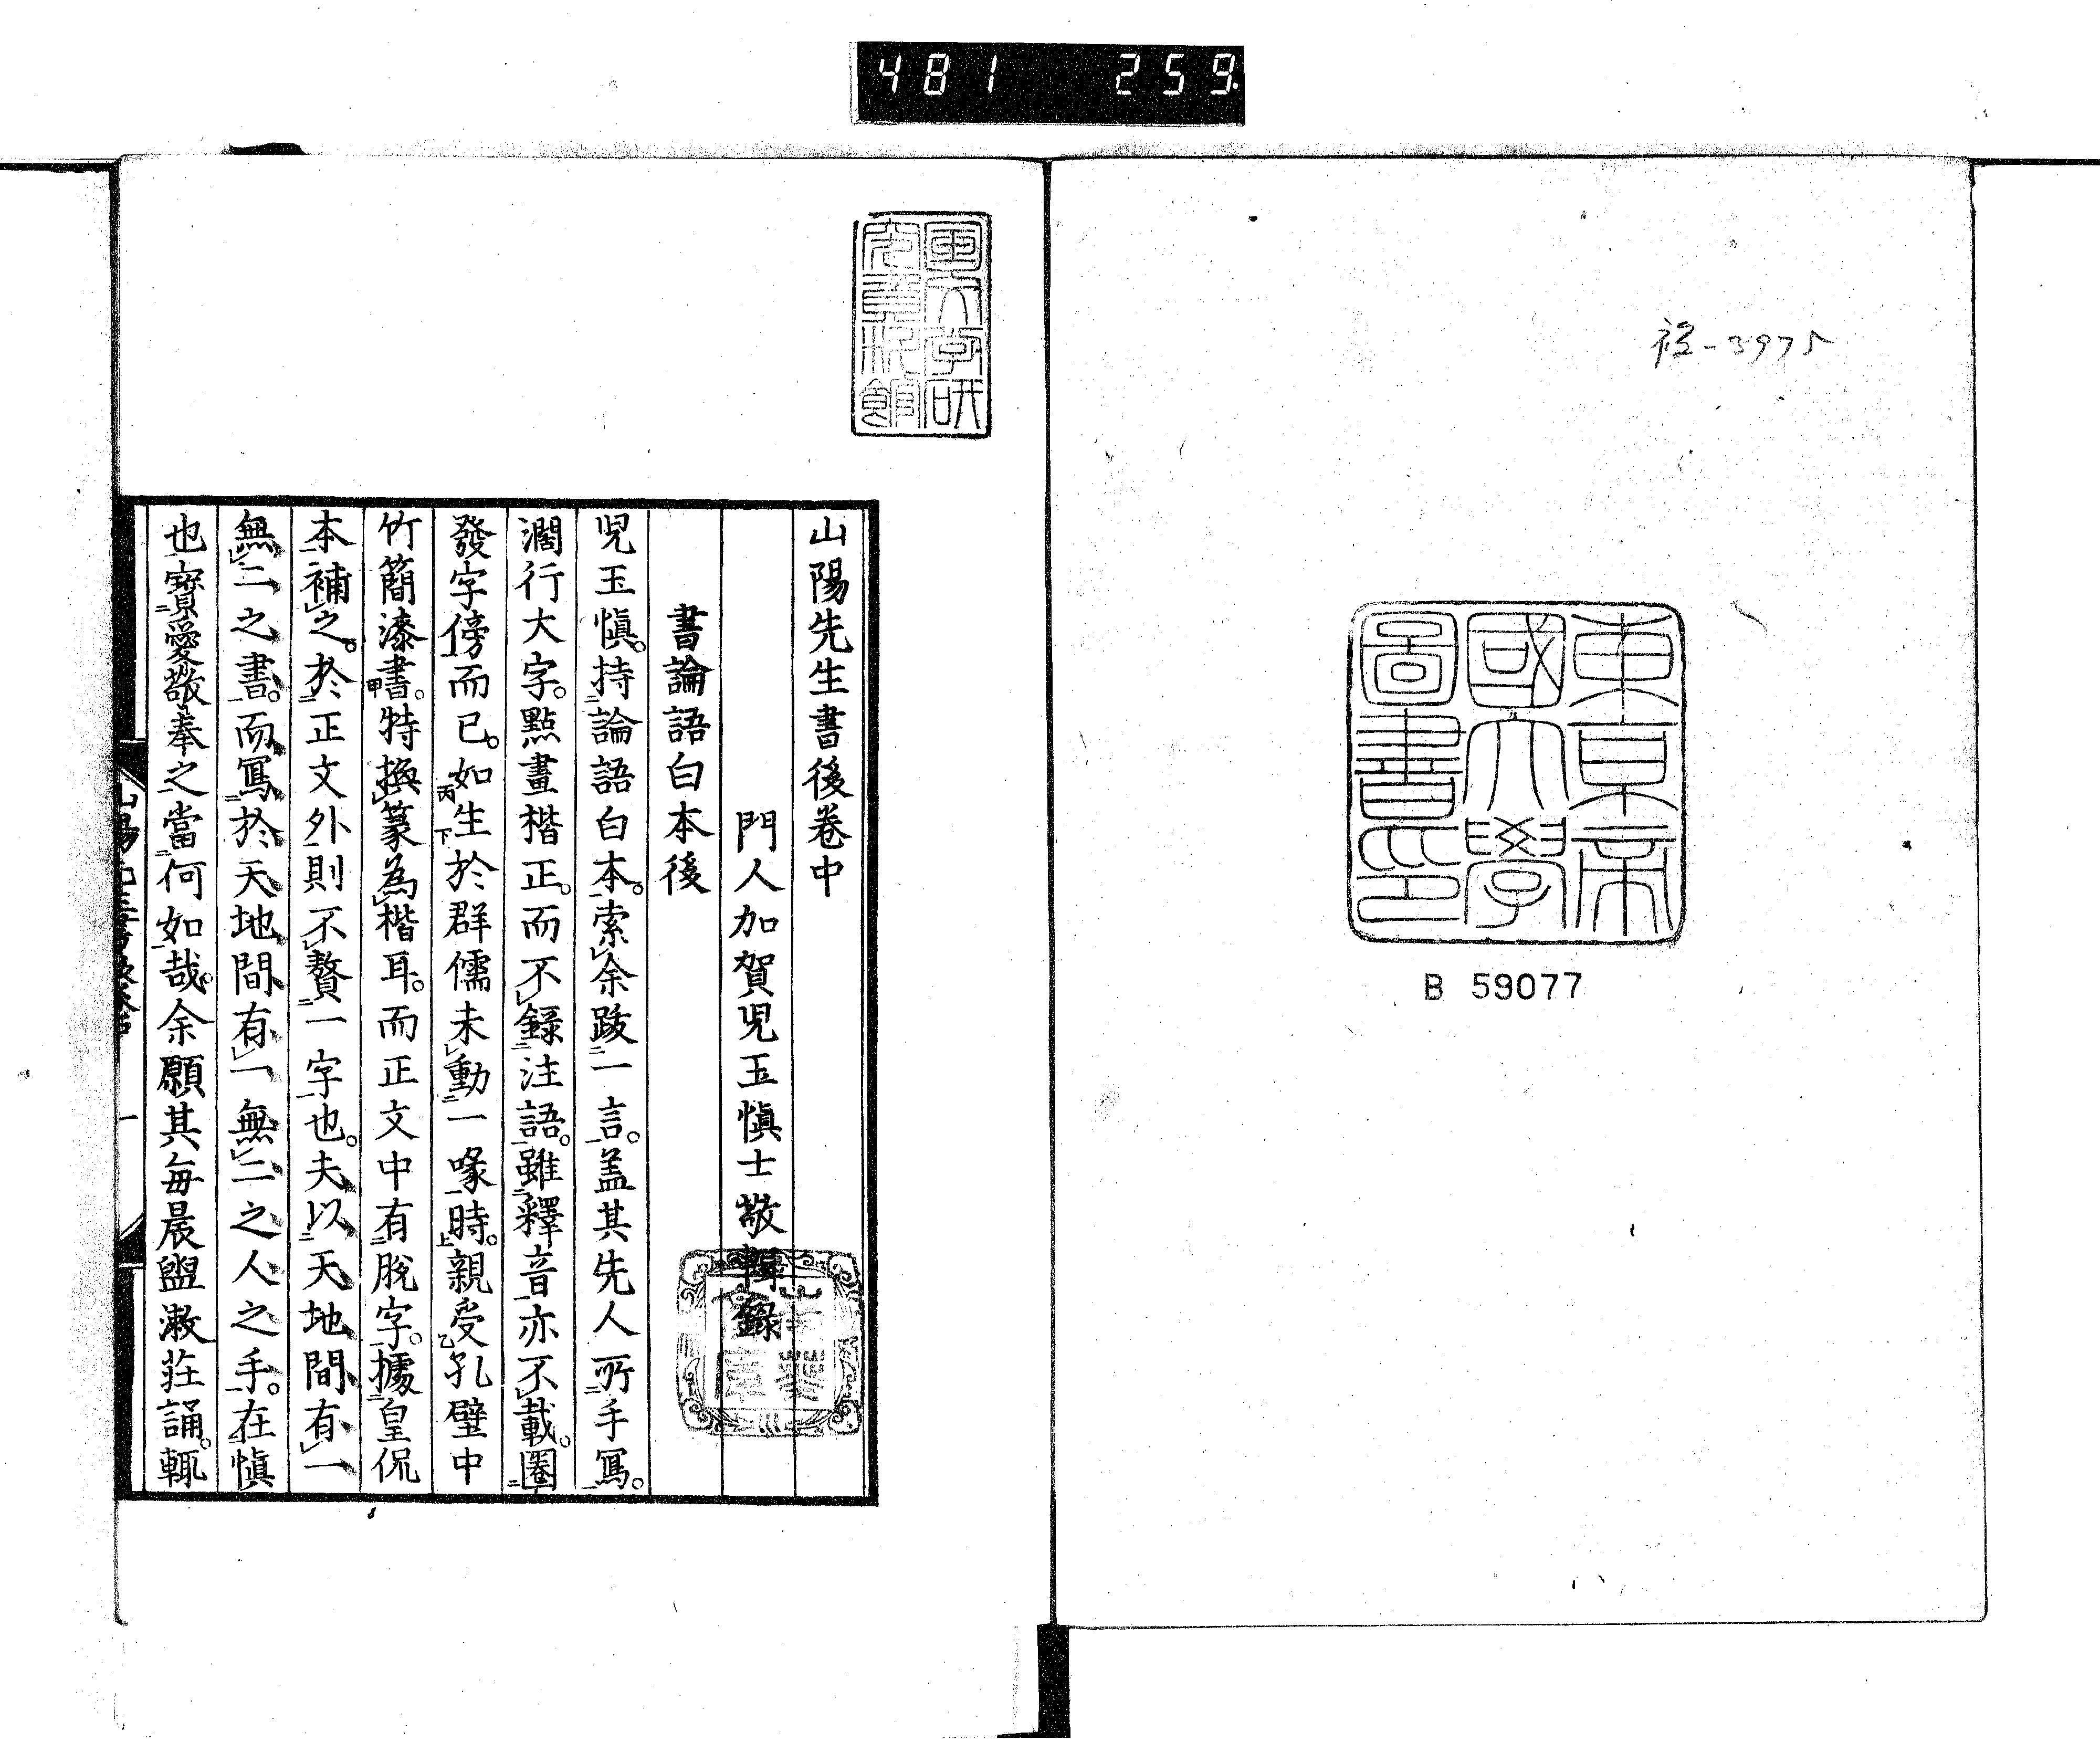 481 259
後-3975
東京帝
國大學
圖書印
B 59077
山陽先生書後卷中
門人加賀児玉愼士敬輯錄
書論語白本後
児玉愼。持論語白本。索余跋一言。盖其先人所手寫。
濶行大字。點畫楷正。而不録注語。雖釋音亦不載。圈
發字傍而已。如生於群儒未動一喙時。親受孔壁中
竹簡漆書。特換篆為楷耳。而正文中有脫字。據皇侃
本補之。於正文外則不贅一字也。夫以天地間有一
無二之書。而寫於天地間有一無二之人之手。在愼
也寶愛敬奉之當何如哉。余願其每晨盥漱莊誦。輒